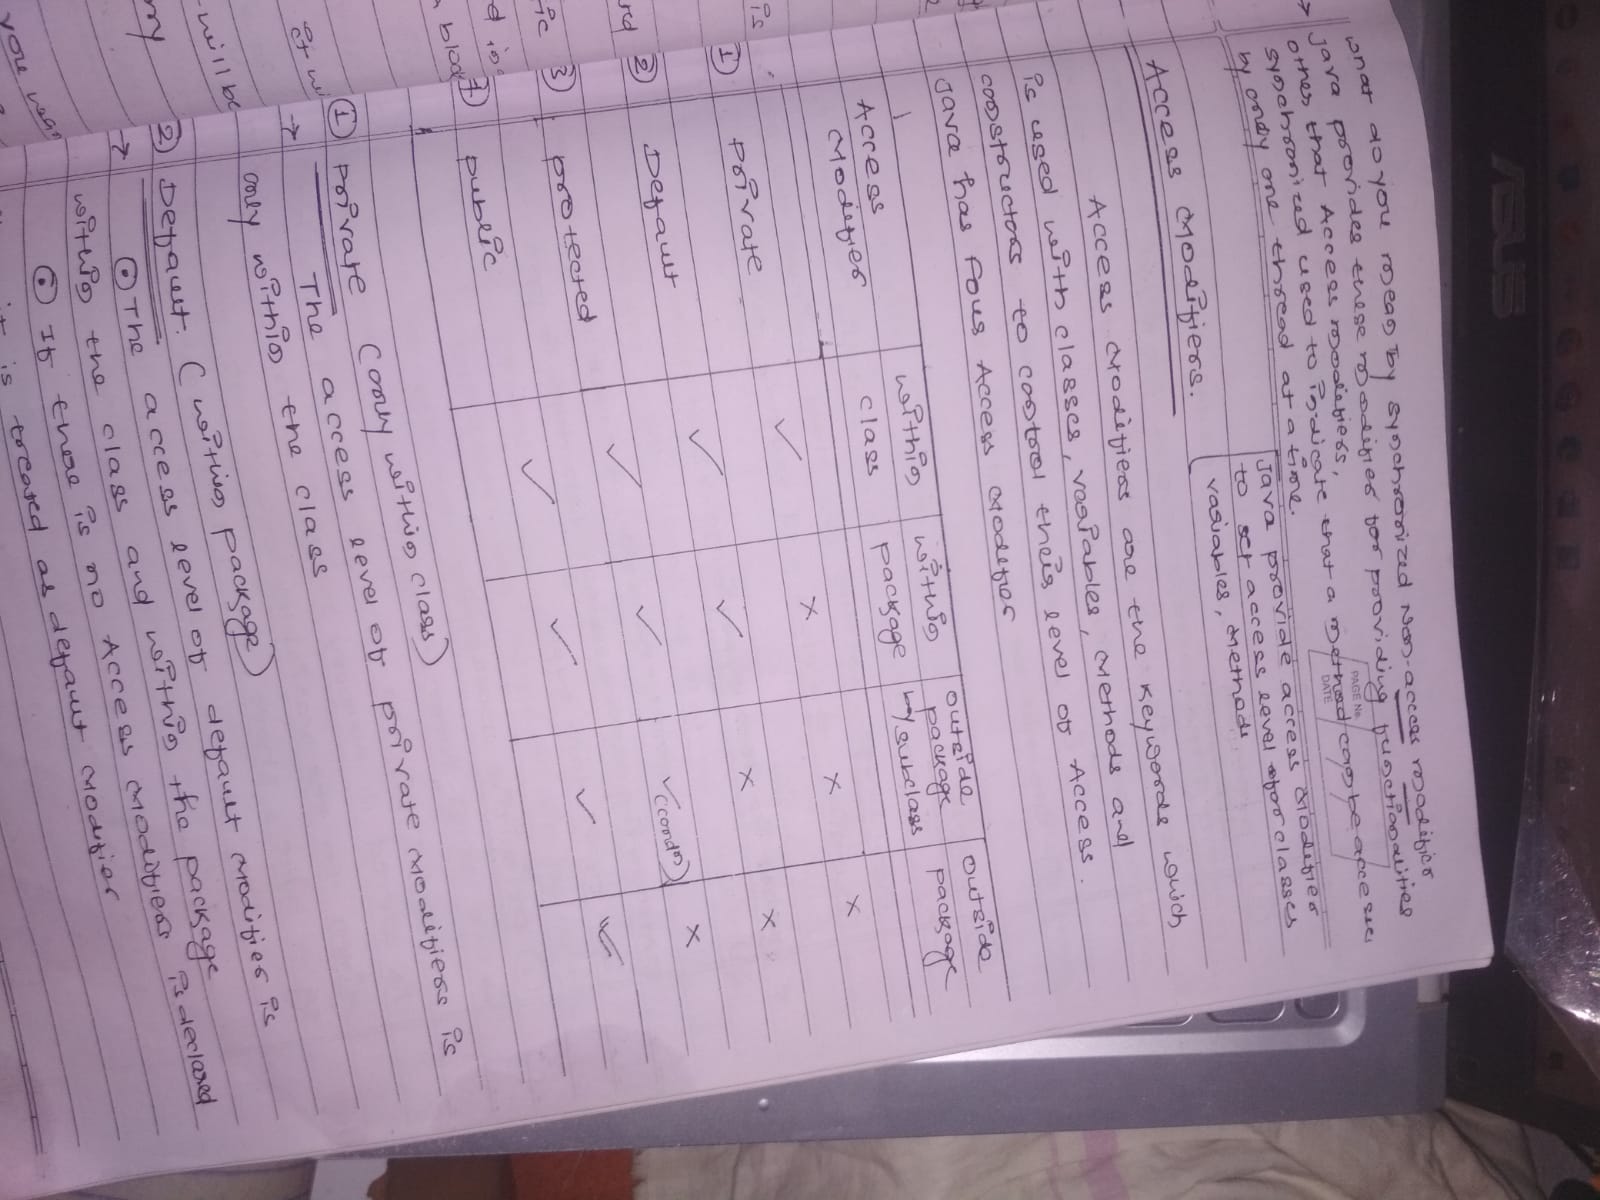 What do you mean by synchronized Non-access modifier
→ Java provides these modifier for providing functionalities
other that Access modifiers,
synchronized used to indicate that a method can be accesses
by only one thread at a time.
PAGE No.
DATE
Java provide access Modifier
to set access level for classes
variables, Methods
Access Modifiers.
Access Modifiers are the Keywords which
is used with classes, variables, Methods and
constructors to control the level of Access.
Java has four Access Modifier
Access Modifier | within class | within package | outside package by subclass | outside package
① private ✓ × × ×
② Default ✓ ✓ × ×
③ protected ✓ ✓ ✓ (condn) ×
④ public ✓ ✓ ✓ ✓
① private (only within class)
→ The access level of private Modifiers is
only within the class
② Default. (within package)
→ ⊙ The access level of default Modifier is
within the class and within the package
⊙ If there is no Access Modifiers is declared
it is treated as default Modifier
you mean
will be
ASUS